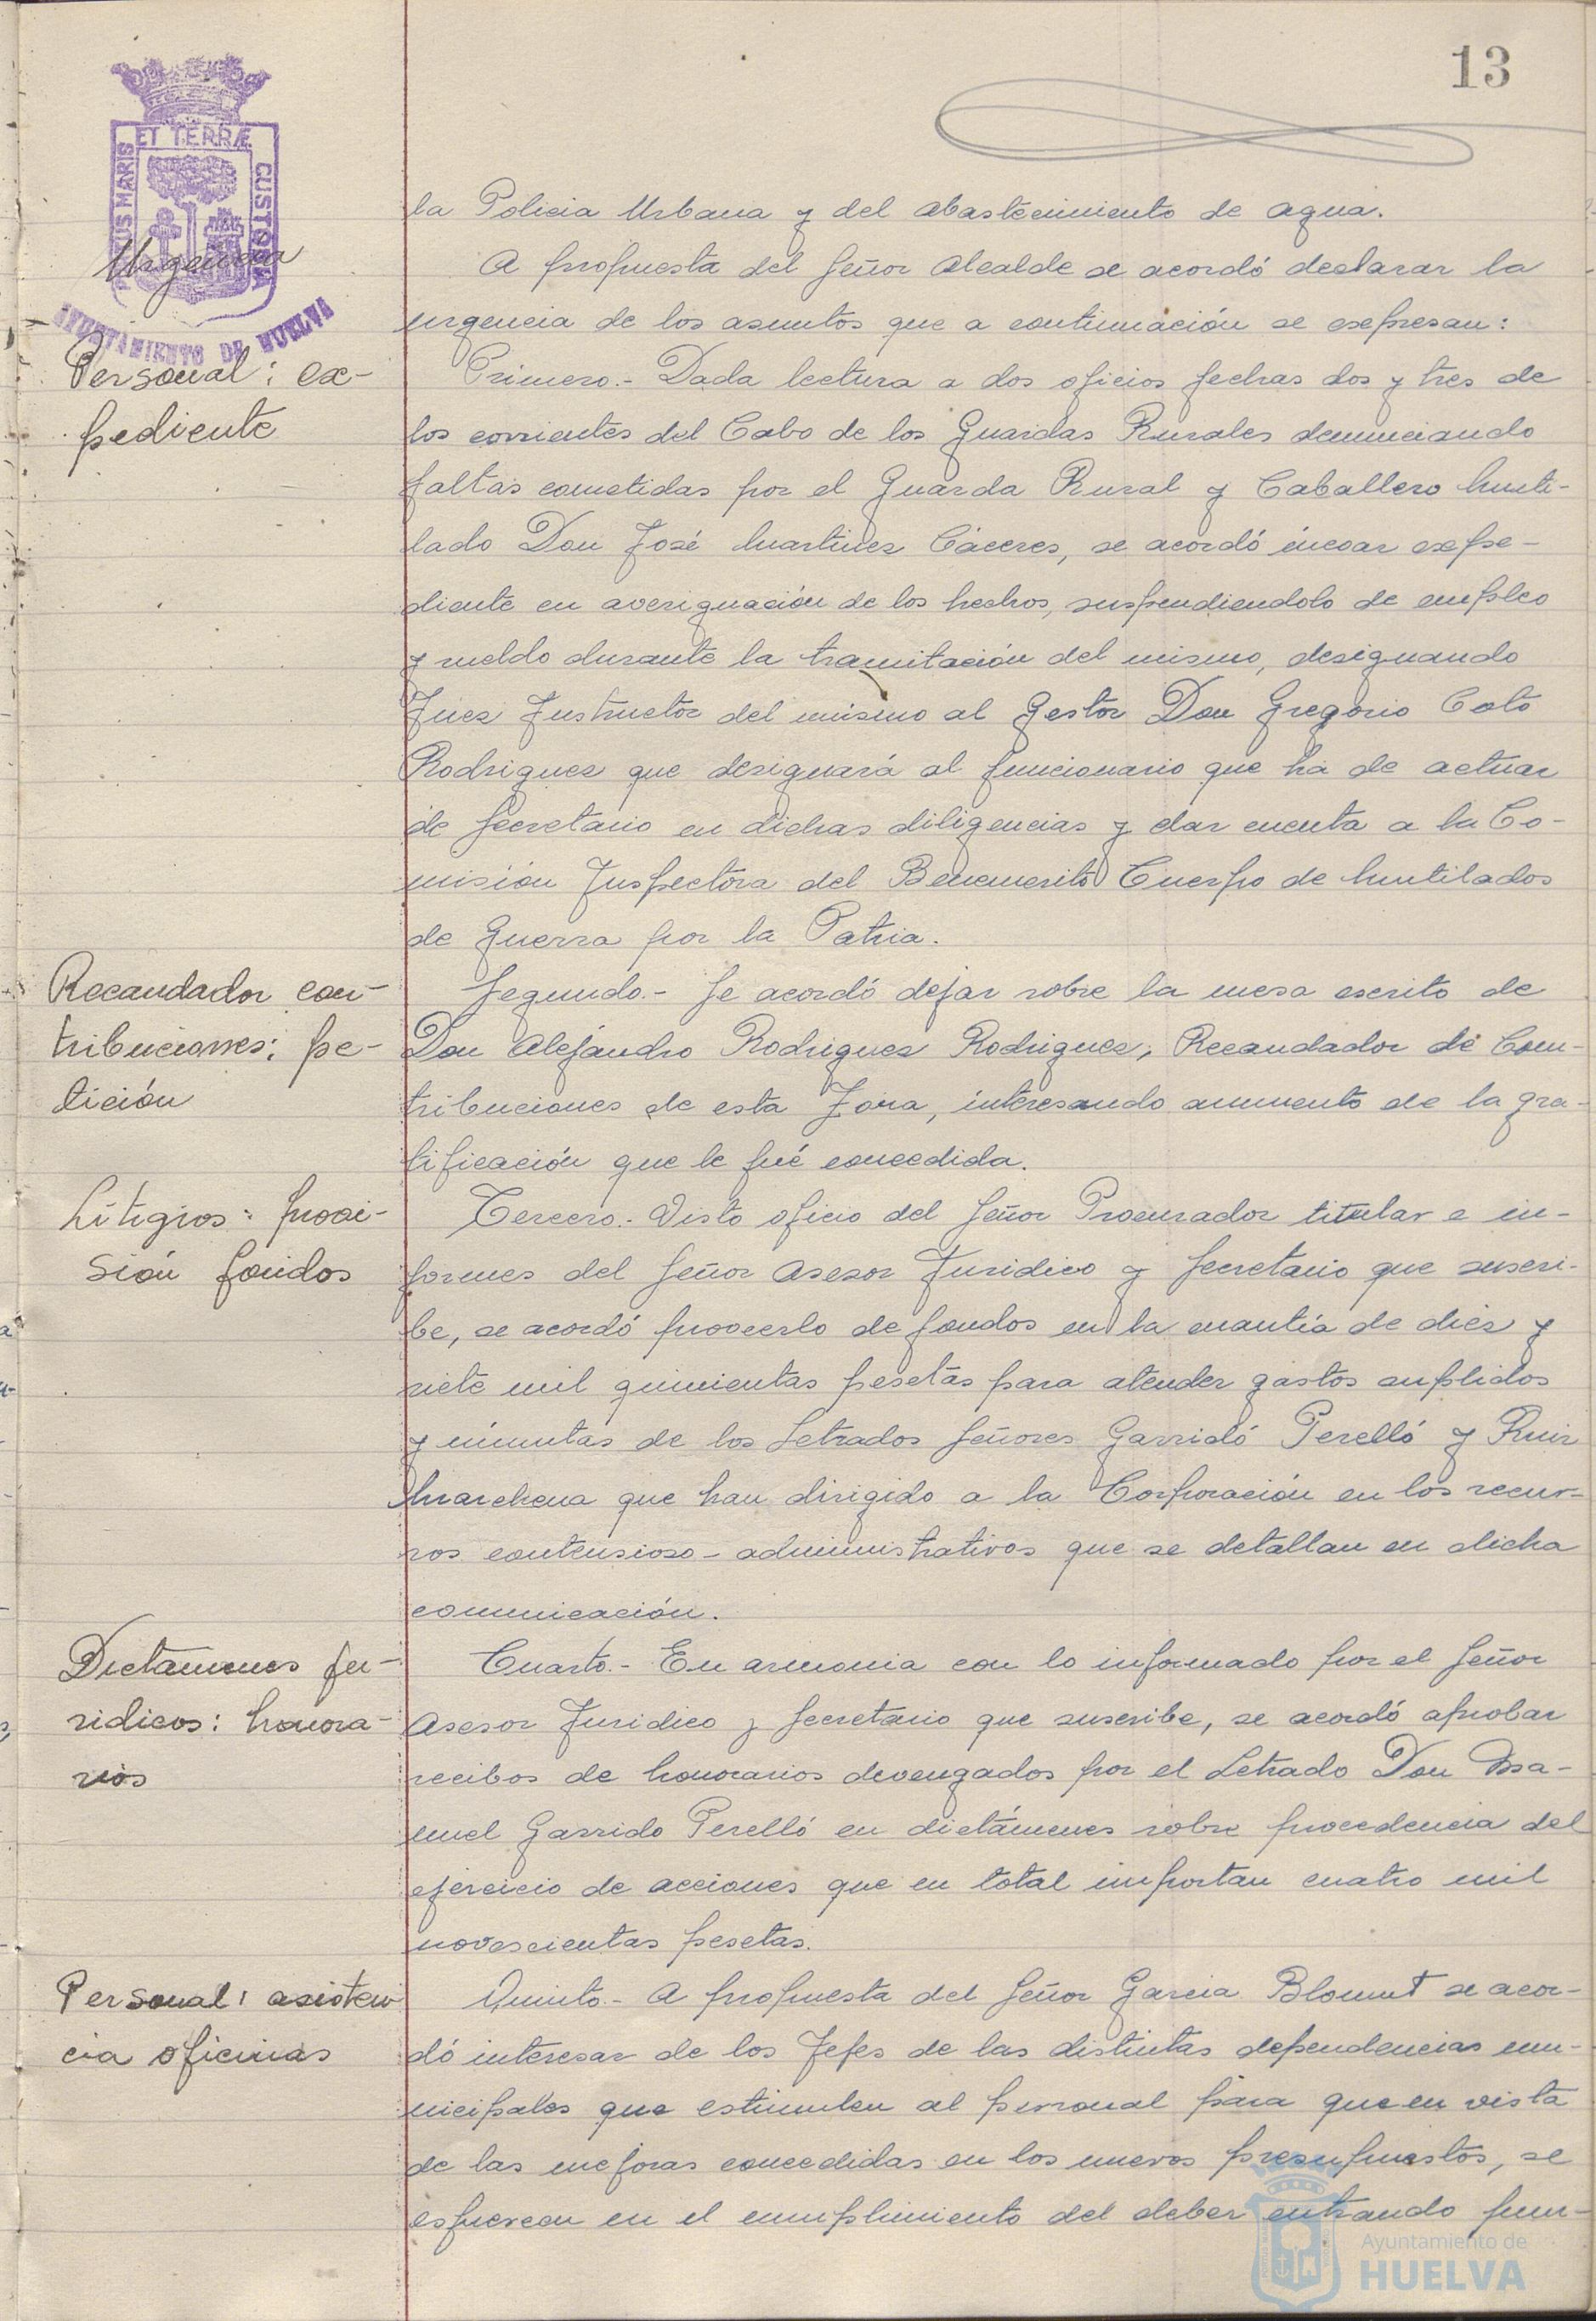 13
PORTUS MARIS ET TERRÆ CUSTODIA
AYUNTAMIENTO DE HUELVA
la Policia Urbana y del abastecimiento de agua.
Urgencia
A propuesta del Señor Alcalde se acordó declarar la
urgencia de los asuntos que a continuación se expresan:
Personal: ex-
pediente
Primero.- Dada lectura a dos oficios fechas dos y tres de
los corrientes del Cabo de los Guardas Rurales denunciando
faltas cometidas por el Guarda Rural y Caballero Muti-
lado Don José Martinez Cáceres, se acordó incoar expe-
diente en averiguación de los hechos, suspendiendolo de empleo
y sueldo durante la tramitación del mismo, designando
Juez Instructor del mismo al Gestor Don Gregorio Coto
Rodriguez que designará al funcionario que ha de actuar
de Secretario en dichas diligencias y dar cuenta a la Co-
misión Inspectora del Benemerito Cuerpo de Mutilados
de Guerra por la Patria.
Recaudador con-
tribuciones: pe-
tición
Segundo.- Se acordó dejar sobre la mesa escrito de
Don Alejandro Rodriguez Rodriguez, Recaudador de Con-
tribuciones de esta Zona, interesando aumento de la gra-
tificación que le fué concedida.
Litigios: provi-
sión fondos
Tercero.- Visto oficio del Señor Procurador titular e in-
formes del Señor Asesor Juridico y Secretario que suscri-
be, se acordó proveerlo de fondos en la cuantía de diez y
siete mil quinientas pesetas para atender gastos suplidos
y minutas de los Letrados Señores Garridó Perelló y Ruiz
Marchena que han dirigido a la Corporación en los recur-
sos contensioso-administrativos que se detallan en dicha
comunicación.
Dictámenes ju-
ridicos: honora-
rios
Cuarto.- En armonia con lo informado por el Señor
Asesor Juridico y Secretario que suscribe, se acordó aprobar
recibos de honorarios devengados por el Letrado Don Ma-
nuel Garrido Perelló en dictámenes sobre procedencia del
ejercicio de acciones que en total importan cuatro mil
novescientas pesetas.
Personal: asisten
cia oficinas
Quinto.- A propuesta del Señor Garcia Blomut se acor-
dó interesar de los Jefes de las distintas dependencias mu-
nicipales que estimulen al personal para que en vista
de las mejoras concedidas en los nuevos presupuestos, se
esfuercen en el cumplimiento del deber entrando pun-
Ayuntamiento de
HUELVA